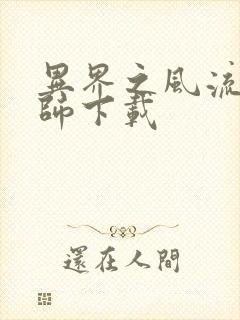 異界之風流
師下載
還在人間